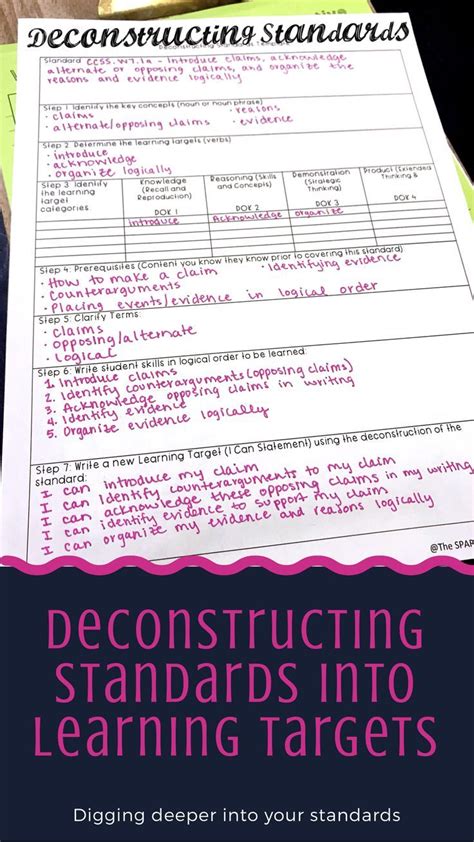 Deconstructing Standards
Deconstructing Standards Template
Standard CCSS. W7.1a - Introduce claims, acknowledge
alternate or opposing claims, and organize the
reasons and evidence logically
Step 1 Identify the key concepts (noun or noun phrase)
• claims • reasons
• alternate/opposing claims • evidence
Step 2: Determine the learning targets (verbs)
• introduce
• acknowledge
• organize logically
Step 3: Identify the learning target categories.
Knowledge (Recall and Reproduction) DOK 1
Reasoning (Skills and Concepts) DOK 2
Demonstration (Strategic Thinking) DOK 3
Product (Extended Thinking & DOK 4
introduce Acknowledge organize
Step 4: Prerequisites (Content you know they know prior to covering this standard)
• How to make a claim • Identifying evidence
• Counterarguments
• Placing events/evidence in logical order
Step 5: Clarify Terms:
• Claims
• opposing/alternate
• Logical
Step 6: Write student skills in logical order to be learned:
1. Introduce claims
2. Identify counterarguments (opposing claims)
3. Acknowledge opposing claims in writing
4. Identify evidence
5. Organize evidence logically
Step 7: Write a new Learning Target (I Can Statement) using the deconstruction of the
standard:
I can introduce my claim
I can identify counterarguments to my claim
I can acknowledge these opposing claims in my writing
I can identify evidence to support my claim
I can organize my evidence and reasons logically
@The SPAR
Deconstructing
Standards into
Learning Targets
Digging deeper into your standards